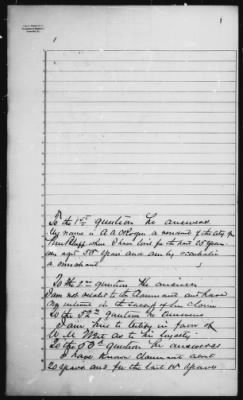 1
1
To the 1st question he answers
My name is A A a resident of the city of
where I have lived for the last 25 years
am aged 58 years and am by
a merchant
To the 2nd question he answers
I am not related to the Claimant and have
no interest in the success of his Claim
To the 52nd question he answers
I am here to testify in favor of
W M West as to his loyalty
To the 53d question he answers
I have known claimant about
20 years and for the last 10 years